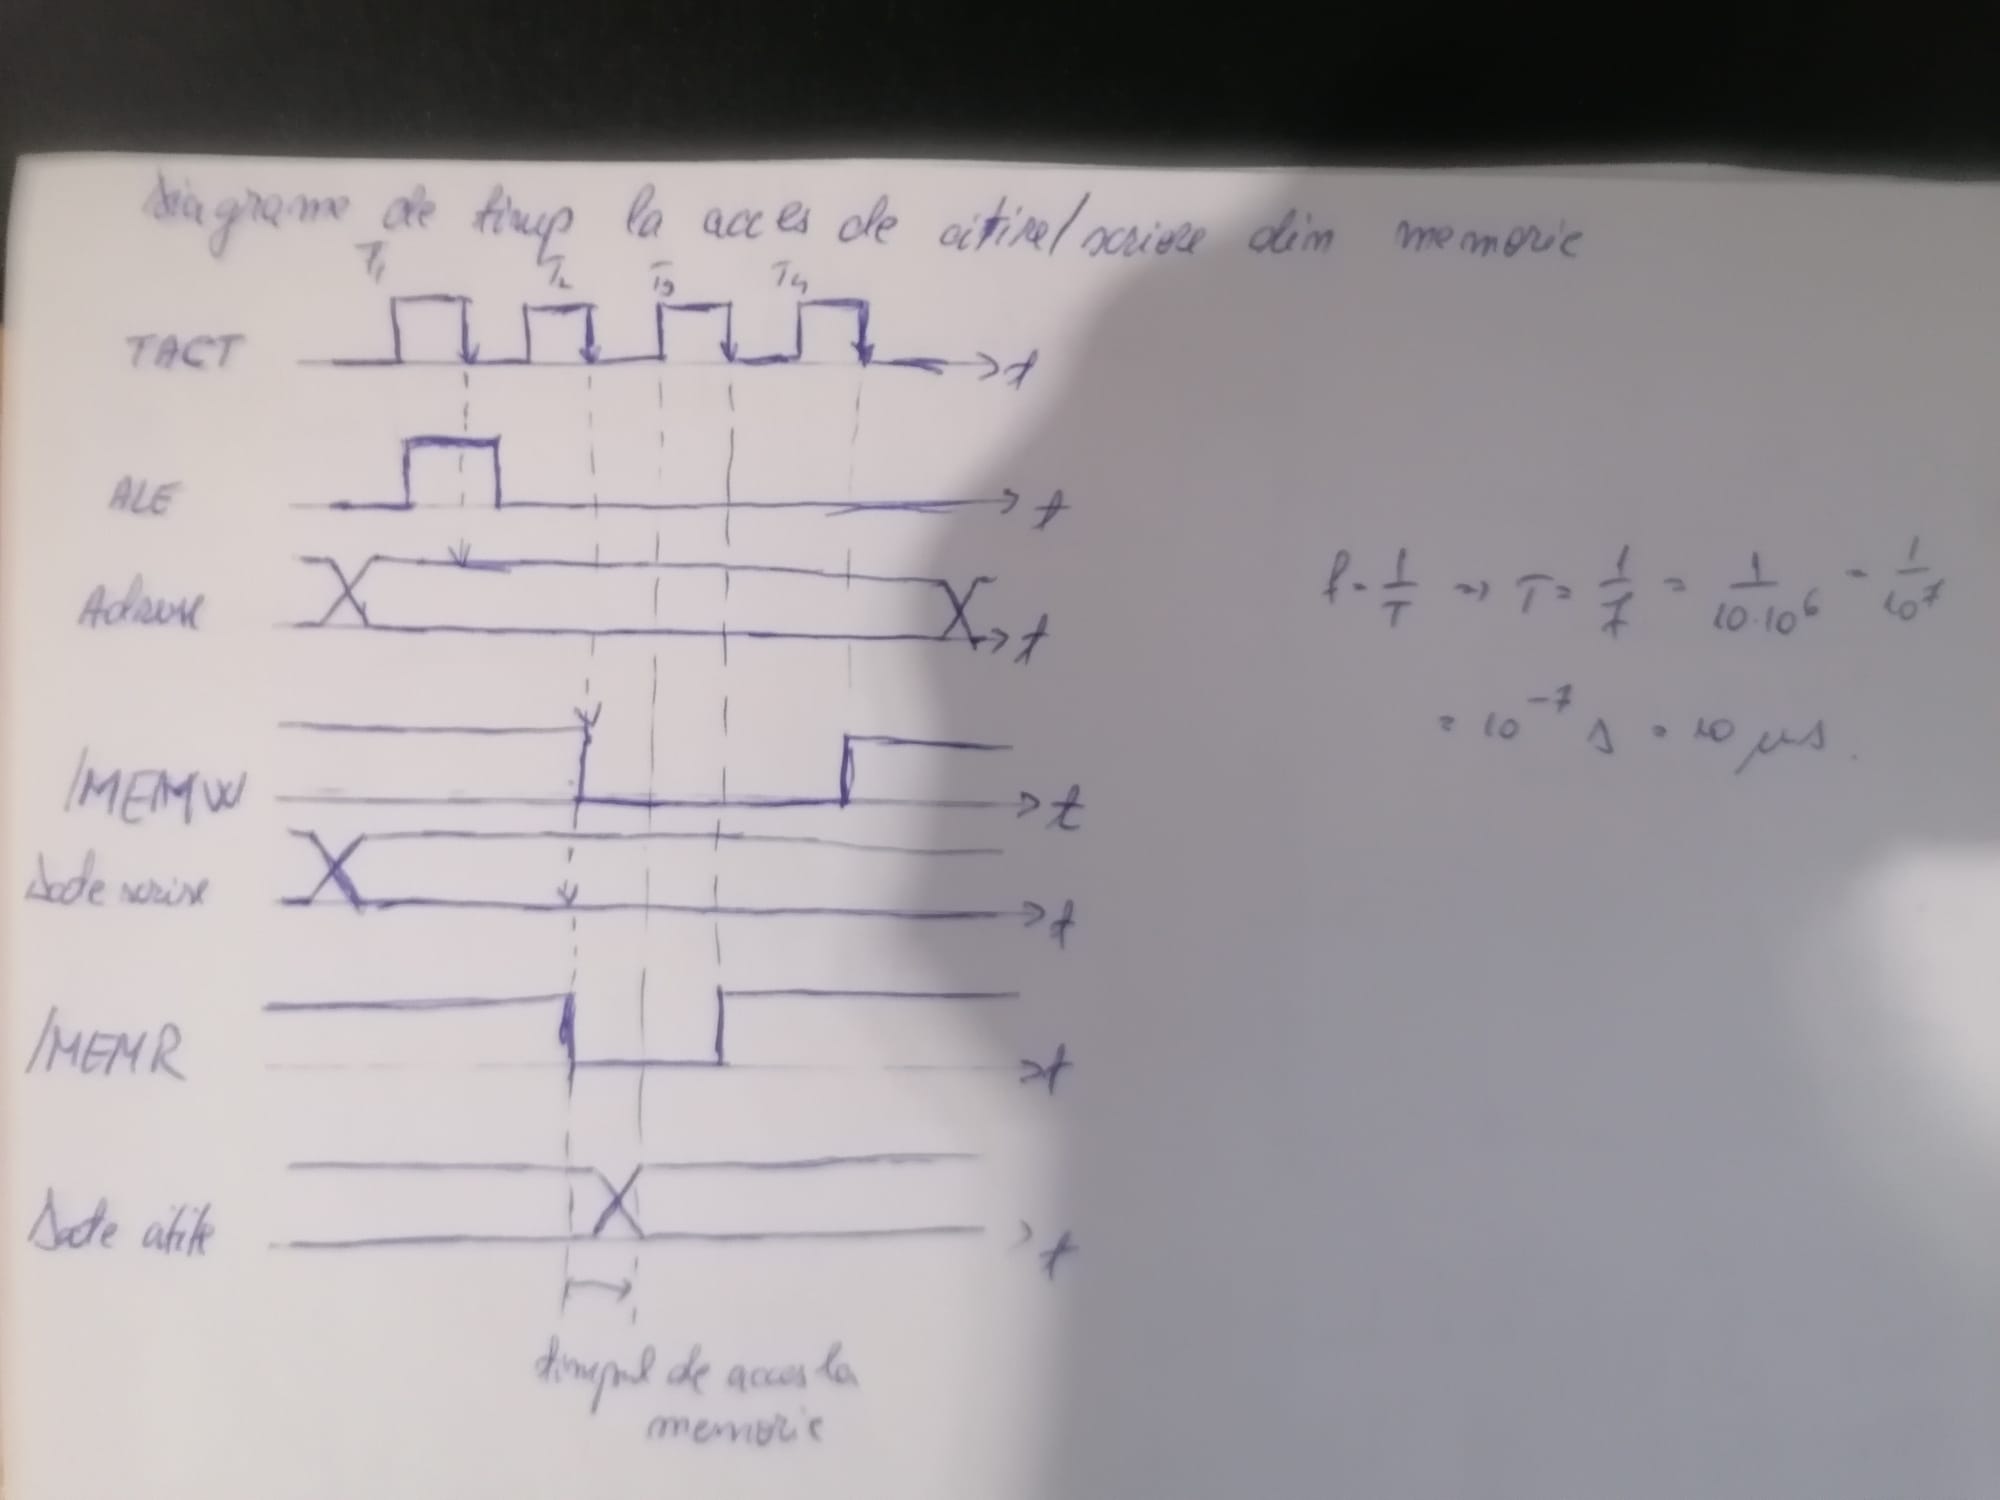 Diagrame de timp la acces de citire/scriere din memorie
T1 T2 T3 T4
TACT t
ALE t
Adrese t
/MEMW t
Date scrise t
/MEMR t
Date citite t
timpul de acces la
memorie
f = 1/T => T = 1/f = 1/10·10^6 = 1/10^7
= 10^-7 s = 10 μs.